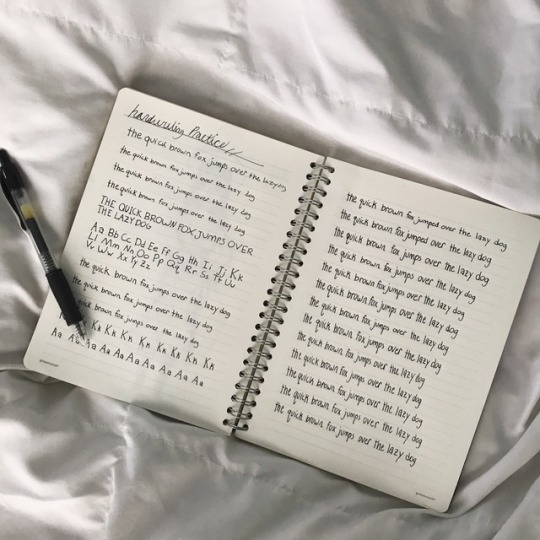 handwriting Practice //
the quick brown fox jumps over the lazy dog
the quick brown fox jumps over the lazy dog
the quick brown fox jumps over the lazy dog
the quick brown fox jumps over the lazy dog
THE QUICK BROWN FOX JUMPS OVER
THE LAZY DOG
Aa Bb Cc Dd Ee Ff Gg Hh Ii Jj Kk
Ll Mm Nn Oo Pp Qq Rr Ss Tt Uu
Vv Ww Xx Yy Zz
the quick brown fox jumps over the lazy dog
the quick brown fox jumps over the lazy dog
quick brown fox jumps over the lazy dog
Kk Kk Kk Kk Kk Kk Kk Kk Kk
Aa Aa Aa Aa Aa Aa Aa Aa Aa Aa
the quick brown fox jumped over the lazy dog
the quick brown fox jumped over the lazy dog
the quick brown fox jumps over the lazy dog
the quick brown fox jumps over the lazy dog
the quick brown fox jumps over the lazy dog
the quick brown fox jumps over the lazy dog
the quick brown fox jumps over the lazy dog
the quick brown fox jumps over the lazy dog
the quick brown fox jumps over the lazy dog
the quick brown fox jumps over the lazy dog
the quick brown fox jumps over the lazy dog
the quick brown fox jumps over the lazy dog
the quick brown fox jumps over the lazy dog